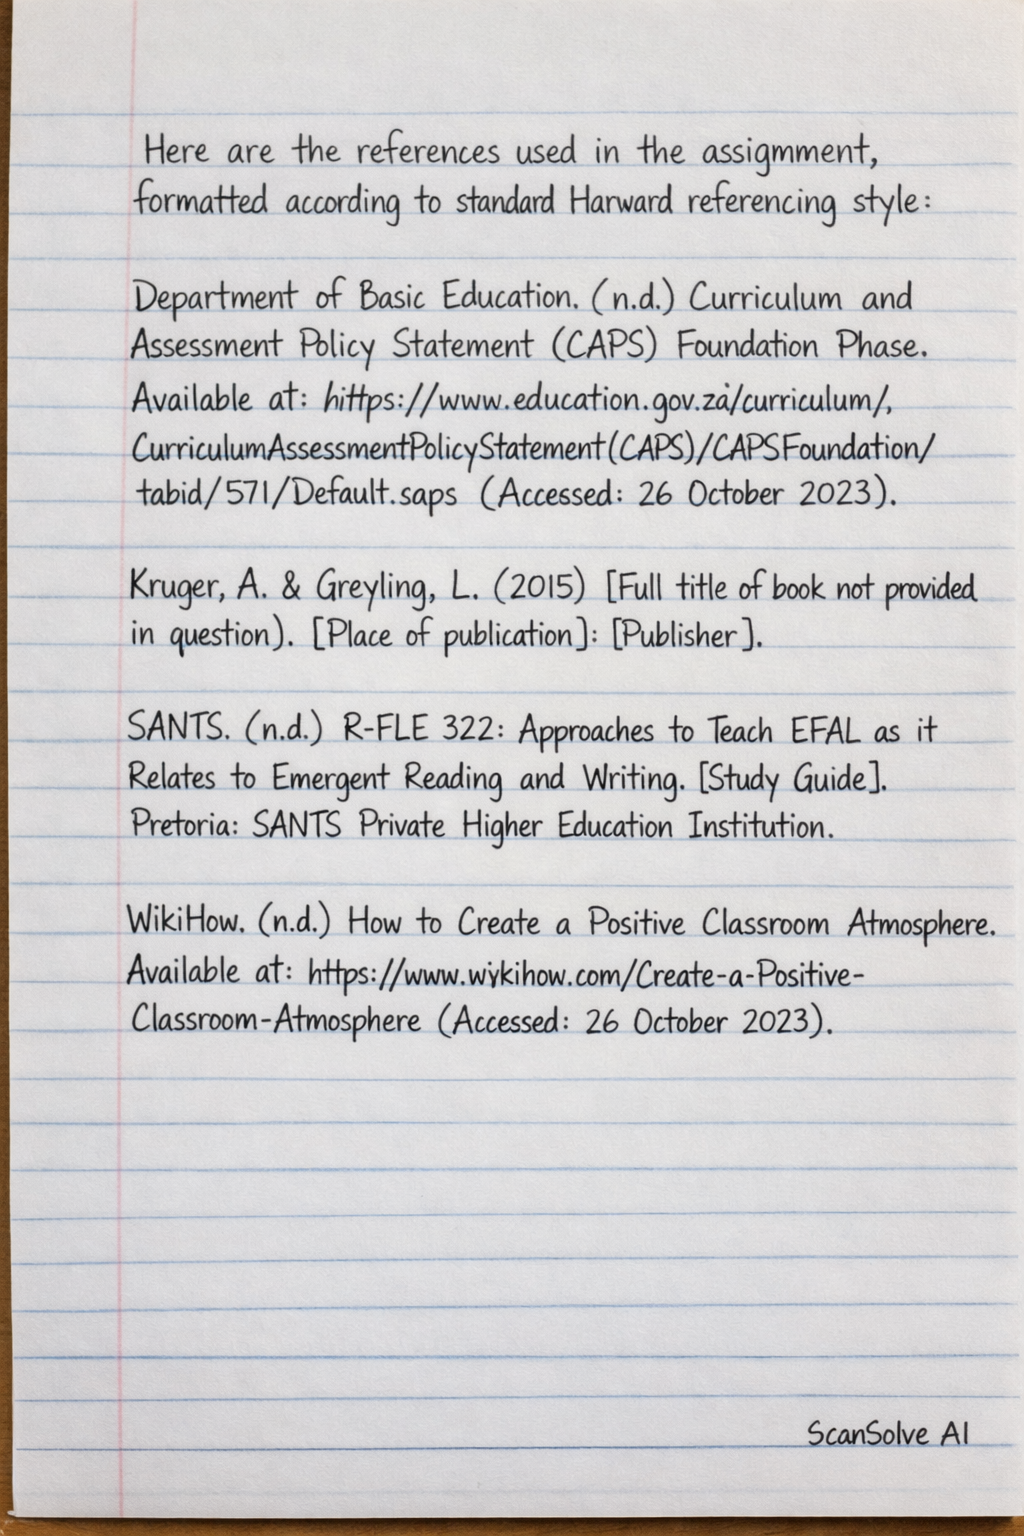 Here are the references used in the assigmment,
formatted according to standard Harward referencing style:
Department of Basic Education. (n.d.) Curriculum and
Assessment Policy Statement (CAPS) Foundation Phase.
Available at: hittps://www.education.gov.za/curriculum/,
CurriculumAssessmentPolicyStatement(CAPS)/CAPSFoundation/
tabid/571/Default.saps (Accessed: 26 October 2023).
Kruger, A. & Greyling, L. (2015) [Full title of book not provided
in question). [Place of publication]: [Publisher].
SANTS. (n.d.) R-FLE 322: Approaches to Teach EFAL as it
Relates to Emergent Reading and Writing. [Study Guide].
Pretoria: SANTS Private Higher Education Institution.
WikiHow. (n.d.) How to Create a Positive Classroom Atmosphere.
Available at: https://www.wykihow.com/Create-a-Positive-
Classroom-Atmosphere (Accessed: 26 October 2023).
ScanSolve AI